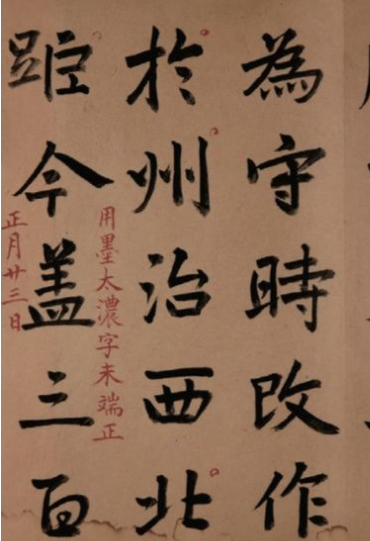 為守時改作
於州治西北
用墨太濃字未端正
距今蓋三百
正月廿三日